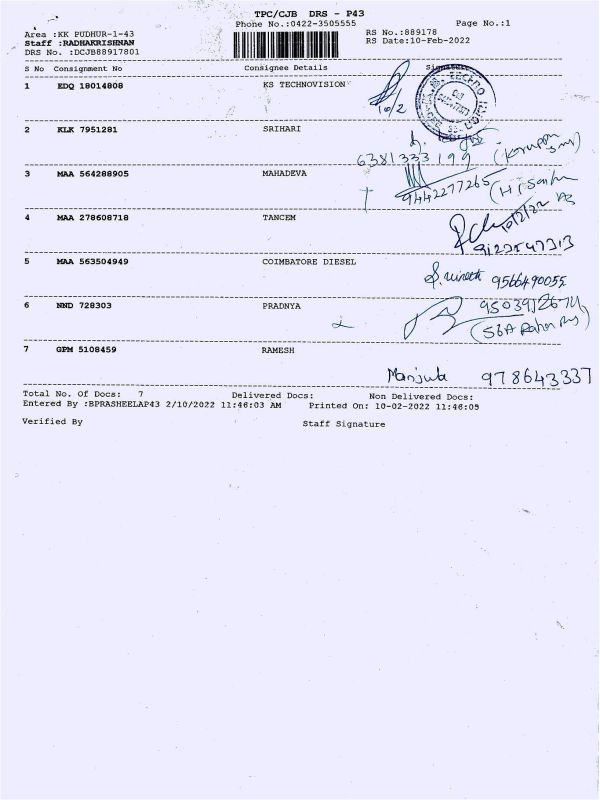 TPC/CJB DRS - P43
Phone No.:0422-3505555
Page No.:1
Area :KK PUDHUR-1-43
RS No.:889178
Staff :RADHAKRISHNAN
RS Date:10-Feb-2022
DRS No. :DCJB88917801
S No Consignment No Consignee Details Signature
1 EDQ 18014808 KS TECHNOVISION
10/2
2 KLK 7951281 SRIHARI
6381333199
3 MAA 564288905 MAHADEVA
9442277265
4 MAA 278608718 TANCEM
10/2/22
5 MAA 563504949 COIMBATORE DIESEL
9566490055
6 NND 728303 PRADNYA
7 GPM 5108459 RAMESH
Manjula 978643337
Total No. Of Docs: 7 Delivered Docs: Non Delivered Docs:
Entered By :BPRASHEELAP43 2/10/2022 11:46:03 AM Printed On: 10-02-2022 11:46:05
Verified By Staff Signature